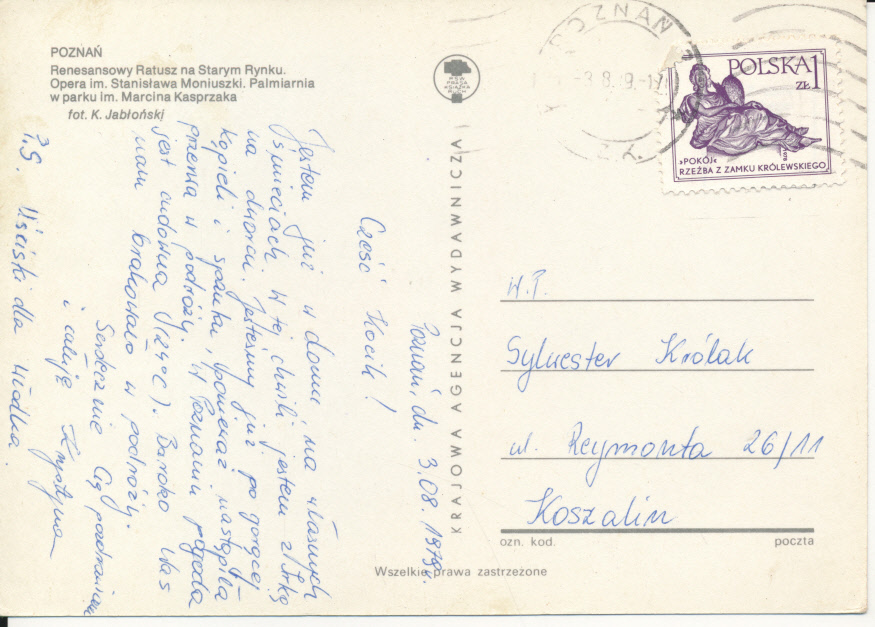 POZNAŃ
Renesansowy Ratusz na Starym Rynku.
Opera im. Stanisława Moniuszki. Palmiarnia
w parku im. Marcina Kasprzaka
fot. K. Jabłoński
RSW
PRASA
KSIĄŻKA
RUCH
KRAJOWA AGENCJA WYDAWNICZA
POZNAŃ 2
POLSKA 1
ZŁ
»POKÓJ«
RZEŹBA Z ZAMKU KRÓLEWSKIEGO
Poznań, dn. 3.08.1979r.
Cześć Kocik!
Jestem już w domu na własnych
śmieciach. W tej chwili jestem z Irką
na dworcu. Jesteśmy już po gorącej
kąpieli i spanku, ponieważ nastąpiła
przerwa w podróży. W Poznaniu pogoda
jest cudowna (24°C). Bardzo Was
nam brakowało w podróży.
Serdecznie Cię pozdrawiam
i całuję Krystyna
P.S. Uściski dla
W.P.
Sylwester Królak
ul. Reymonta 26/11
Koszalin
ozn. kod. poczta
Wszelkie prawa zastrzeżone